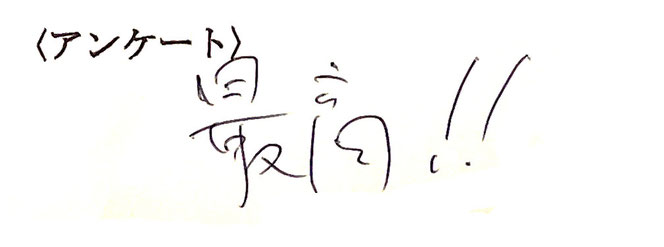 〈アンケート〉
最高!!